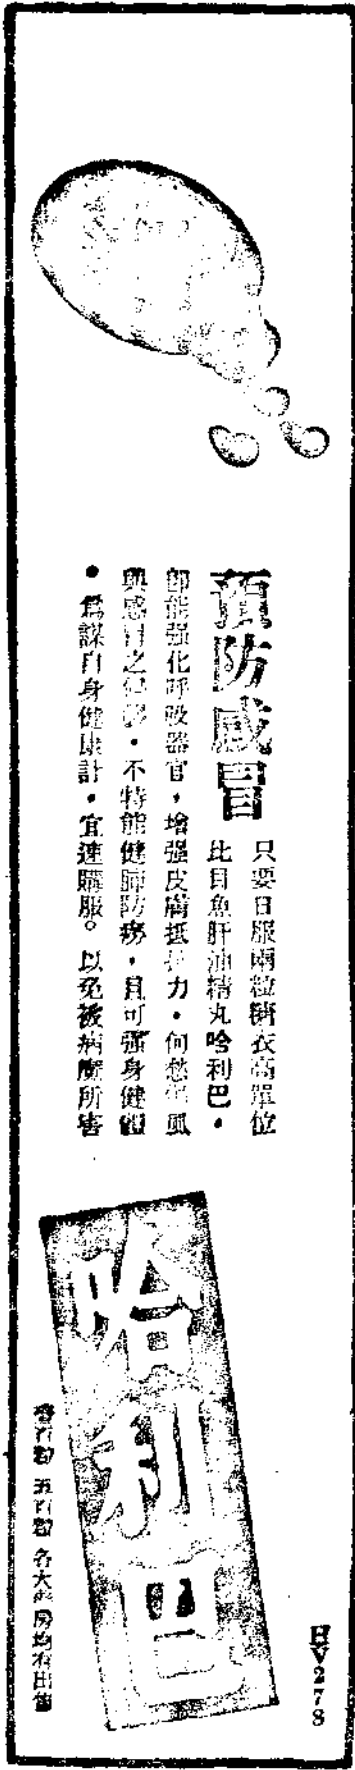 預防感冒
只要日服兩粒糖衣高單位
比目魚肝油精丸哈利巴・
即能强化呼吸器官，增强皮膚抵抗力・何愁傷風
與感冒之侵襲・不特能健肺防癆，且可强身健體
・為謀自身健康計・宜速購服。以免被病魔所害
哈利巴
各大藥房均有出售
HV278